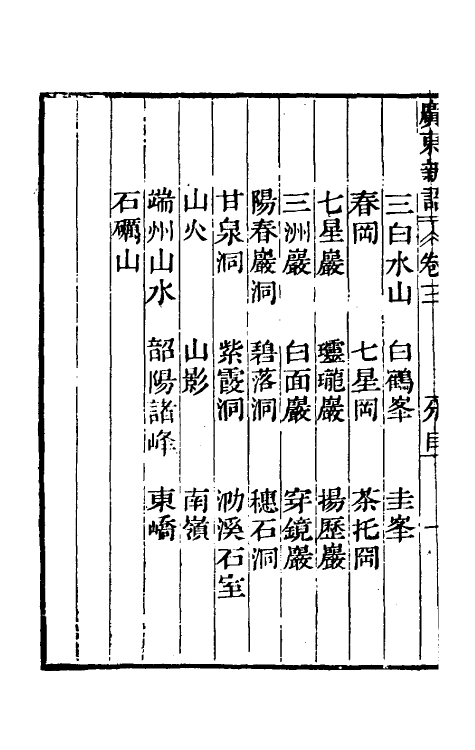 廣東新語 卷三 分目 一
三白水山 白鶴峯 圭峯
春岡 七星岡 茶托岡
七星巖 瓏巖 揚歷巖
三洲巖 白面巖 穿鏡巖
陽春巖洞 碧落洞 穗石洞
甘泉洞 紫霞洞 泐溪石室
山火 山影 南嶺
端州山水 韶陽諸峰 東嶠
石礪山